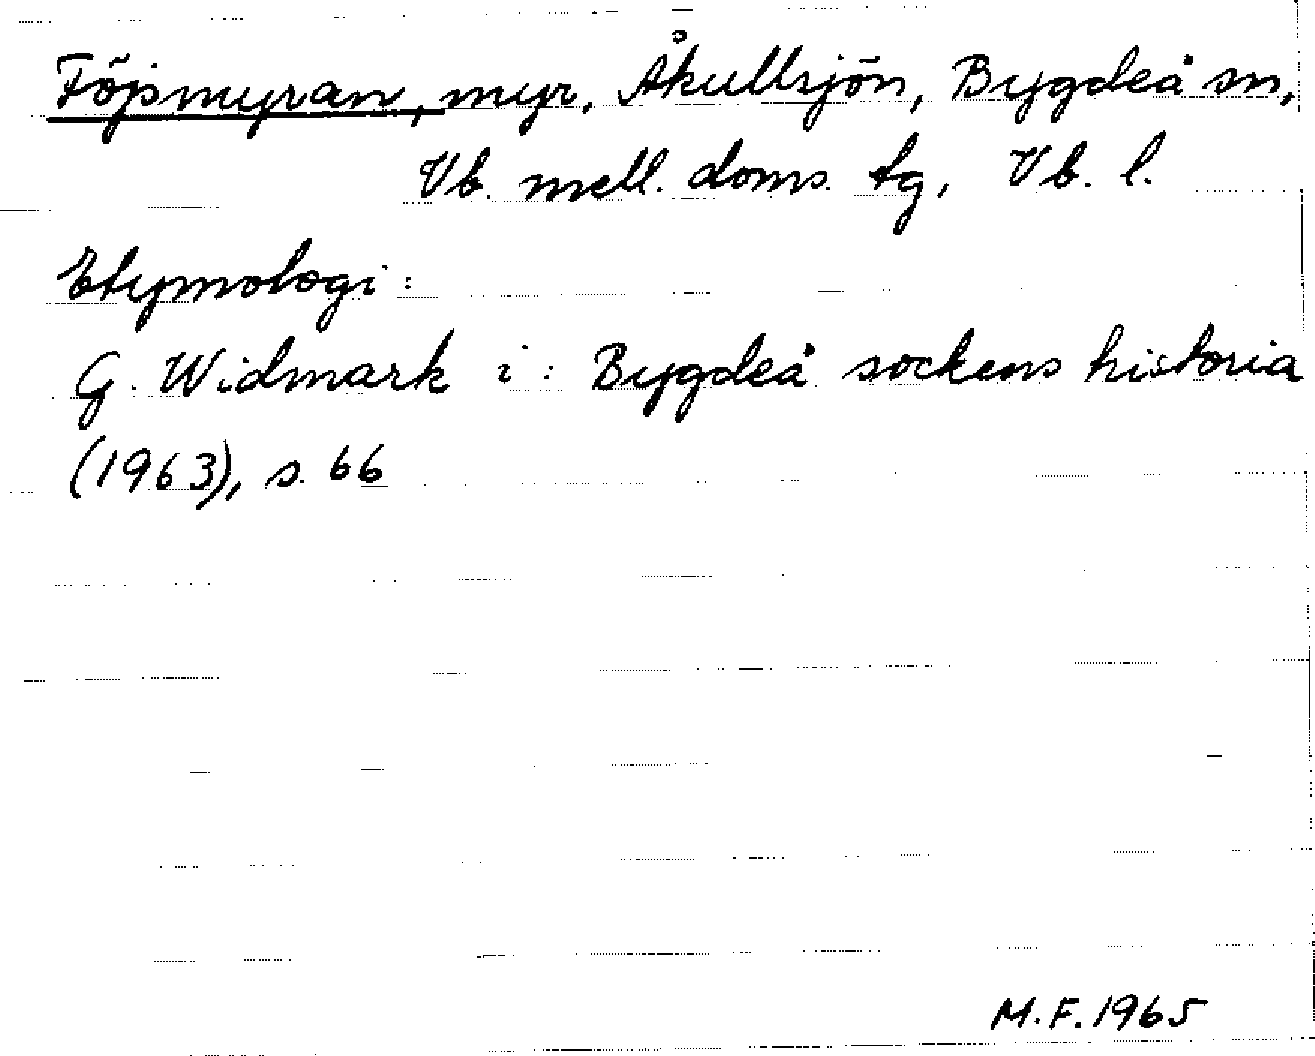 Föjpmyran, myr, Åkullsjön, Bygdeå sn,
Vb. mell. doms. tg, Vb. l.
Etymologi:
G. Widmark i: Bygdeå sockens historia
(1963), s. 66
M.F. 1965